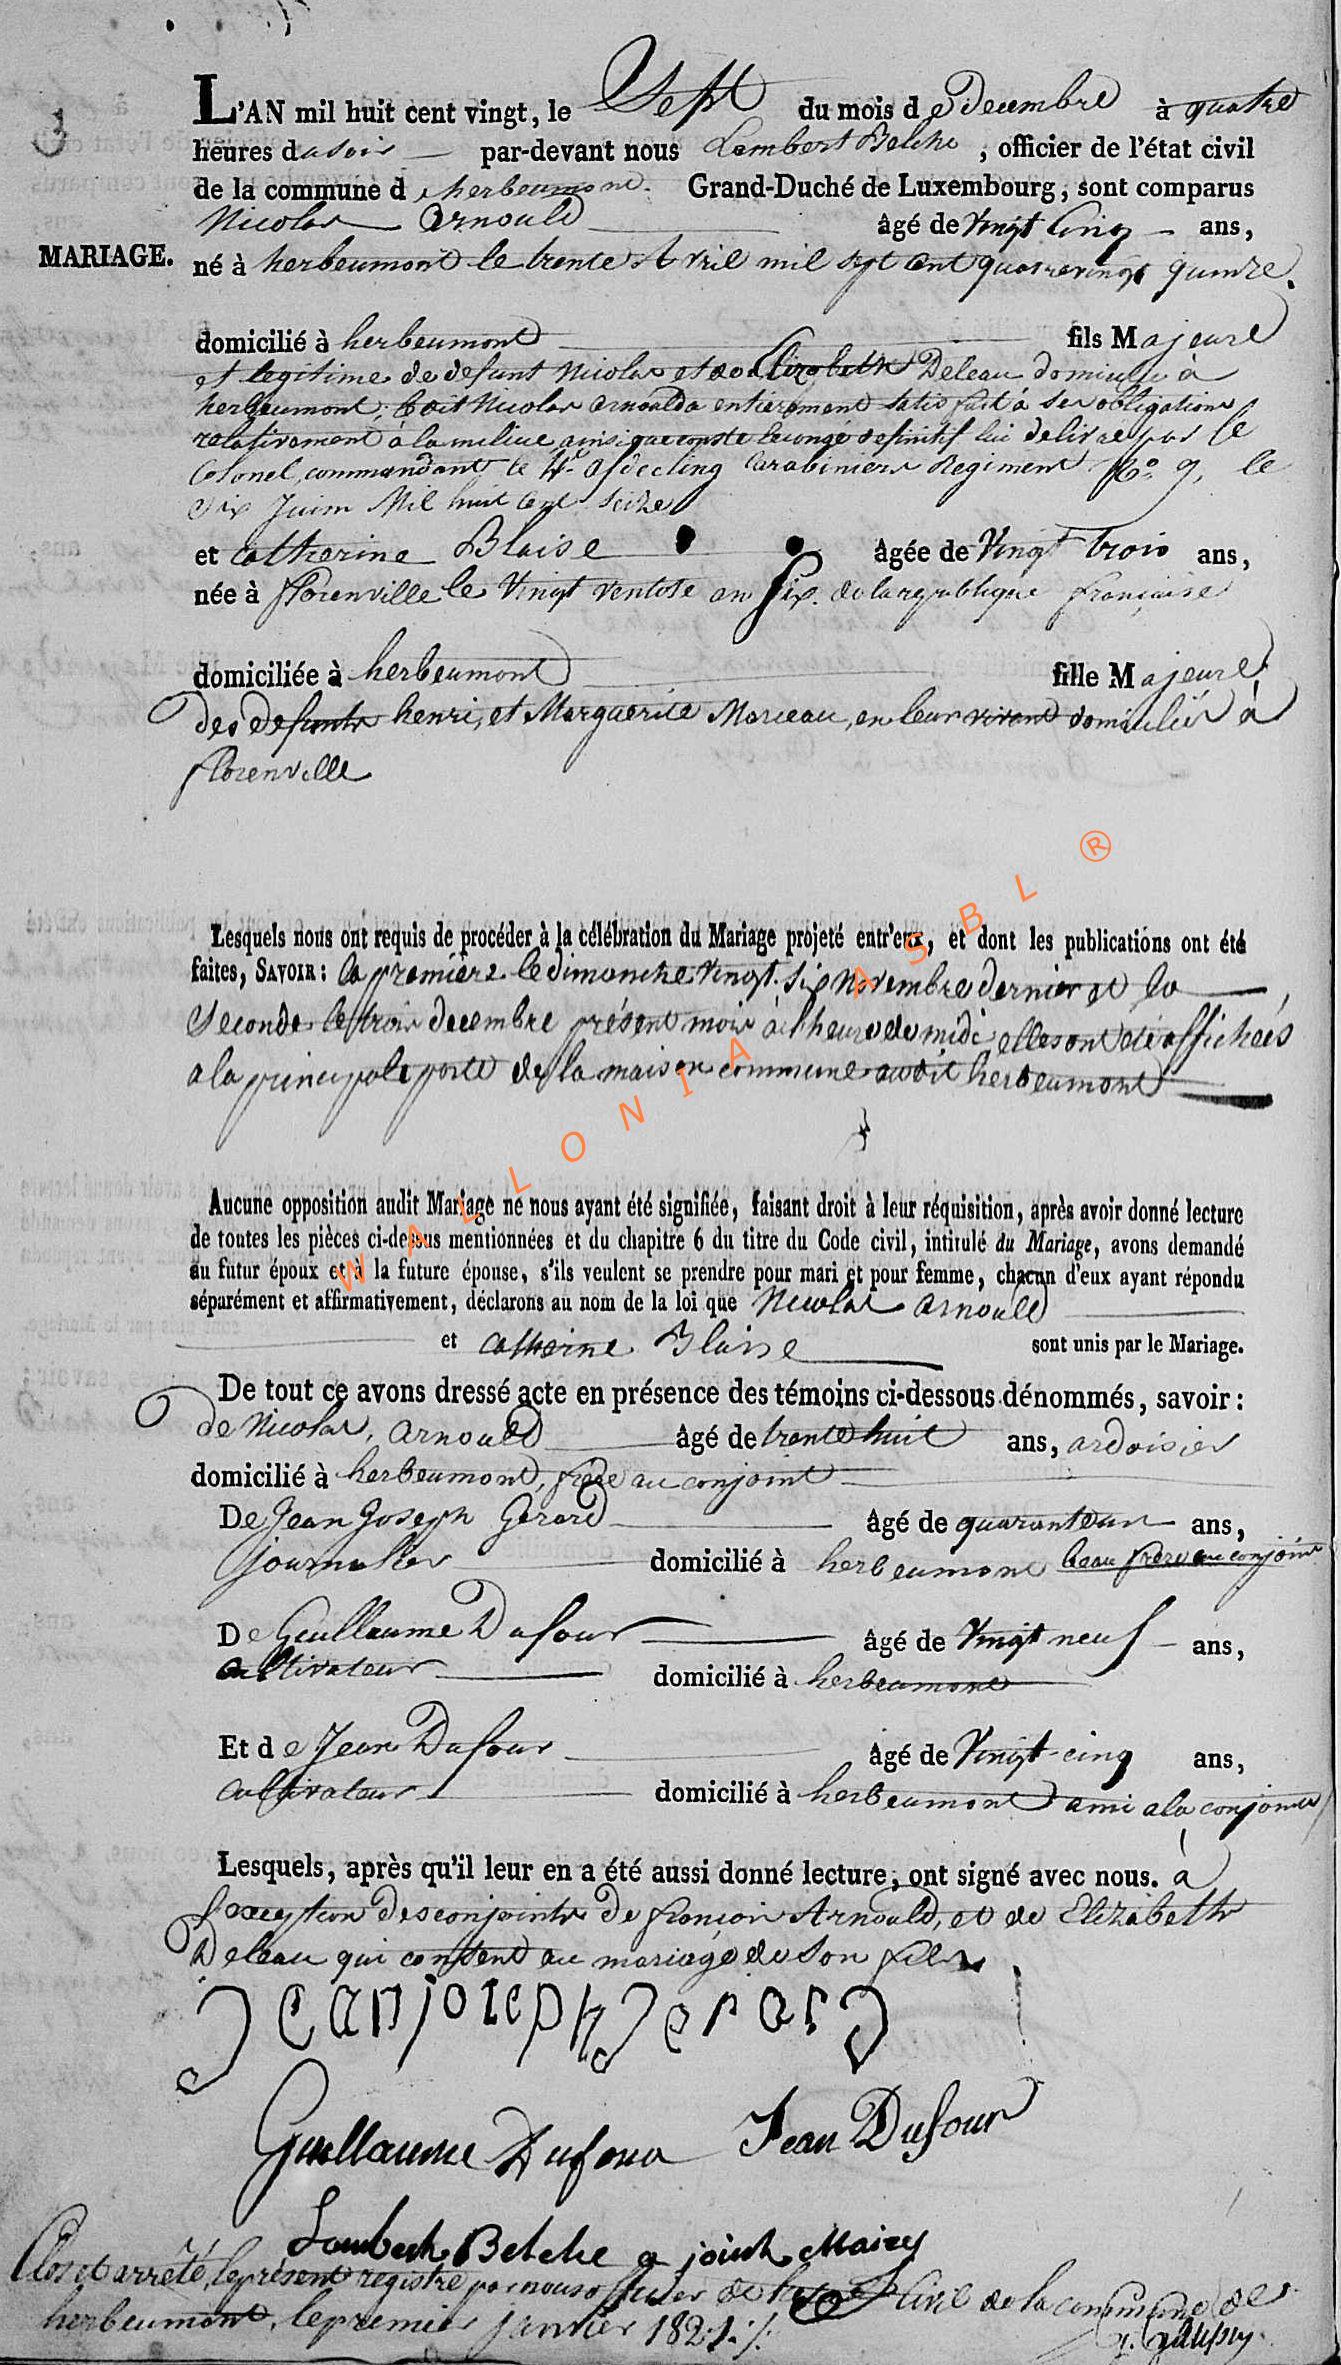 L'AN mil huit cent vingt, le Sept du mois de Decembre à quatre
heures du soir par-devant nous Lambert Belche, officier de l'état civil
de la commune d herbeumont. Grand-Duché de Luxembourg, sont comparus
Nicolas Arnould âgé de Vingt Cinq ans,
MARIAGE.
né à herbeumont le trente Avril mil sept cent quatrevingt quinze.
domicilié à herbeumont fils Majeure
et legitime de defunt Nicolas et de Elizabeth Deleau domiciliée à
herbeumont; Ledit Nicolas Arnould a entierement satisfait à ses obligations
relativement à la milice ainsi que conste le congé definitif lui delivré par le
Colonel commandant le afdecling Carabiniers Regiment No 9, le
Six Juin Mil huit Cent Seize
et catherine Blaise âgée de Vingt trois ans,
née à florenville le Vingt ventose an Six de la republique française
domiciliée à herbeumont fille Majeure
des defunts henri, et Marguerite Marceau, en leur vivant domiciliés à
florenville
Lesquels nous ont requis de procéder à la célébration du Mariage projeté entr'eux, et dont les publications ont été
faites, SAVOIR: la premiere le dimanche Vingt six Novembre dernier et la
Seconde le trois decembre présent mois à l'heure de midi elles ont été affichées
a la principale porte de la maison commune audit herbeumont
Aucune opposition audit Mariage ne nous ayant été signifiée, faisant droit à leur réquisition, après avoir donné lecture
de toutes les pièces ci-dessus mentionnées et du chapitre 6 du titre du Code civil, intitulé du Mariage, avons demandé
au futur époux et à la future épouse, s'ils veulent se prendre pour mari et pour femme, chacun d'eux ayant répondu
séparément et affirmativement, déclarons au nom de la loi que Nicolas Arnould
et catherine Blaise sont unis par le Mariage.
De tout ce avons dressé acte en présence des témoins ci-dessous dénommés, savoir:
de Nicolas, Arnould âgé de trente huit ans, ardoisier
domicilié à herbeumont, frere au conjoint
De Jean Joseph Gerard âgé de quarante un ans,
journalier domicilié à herbeumont beau frere au conjoint
De Guillaume Dufour âgé de Vingt neuf ans,
cultivateur domicilié à herbeumont
Et de Jean Dufour âgé de Vingt-cinq ans,
cultivateur domicilié à herbeumont ami a la conjointe
Lesquels, après qu'il leur en a été aussi donné lecture, ont signé avec nous. à
l'exception des conjoints de francois Arnould, et de Elizabeth
Deleau qui consent au mariage de son fils
jeanjoseph Jerard
Guillaume Dufour Jean Dufour
Lambert Belche a joint Maire
Clos et arrêté le présent registre par nous officier de l'état Civil de la commune de
herbeumont, le premier janvier 1821.
WALLONIA ASBL ®